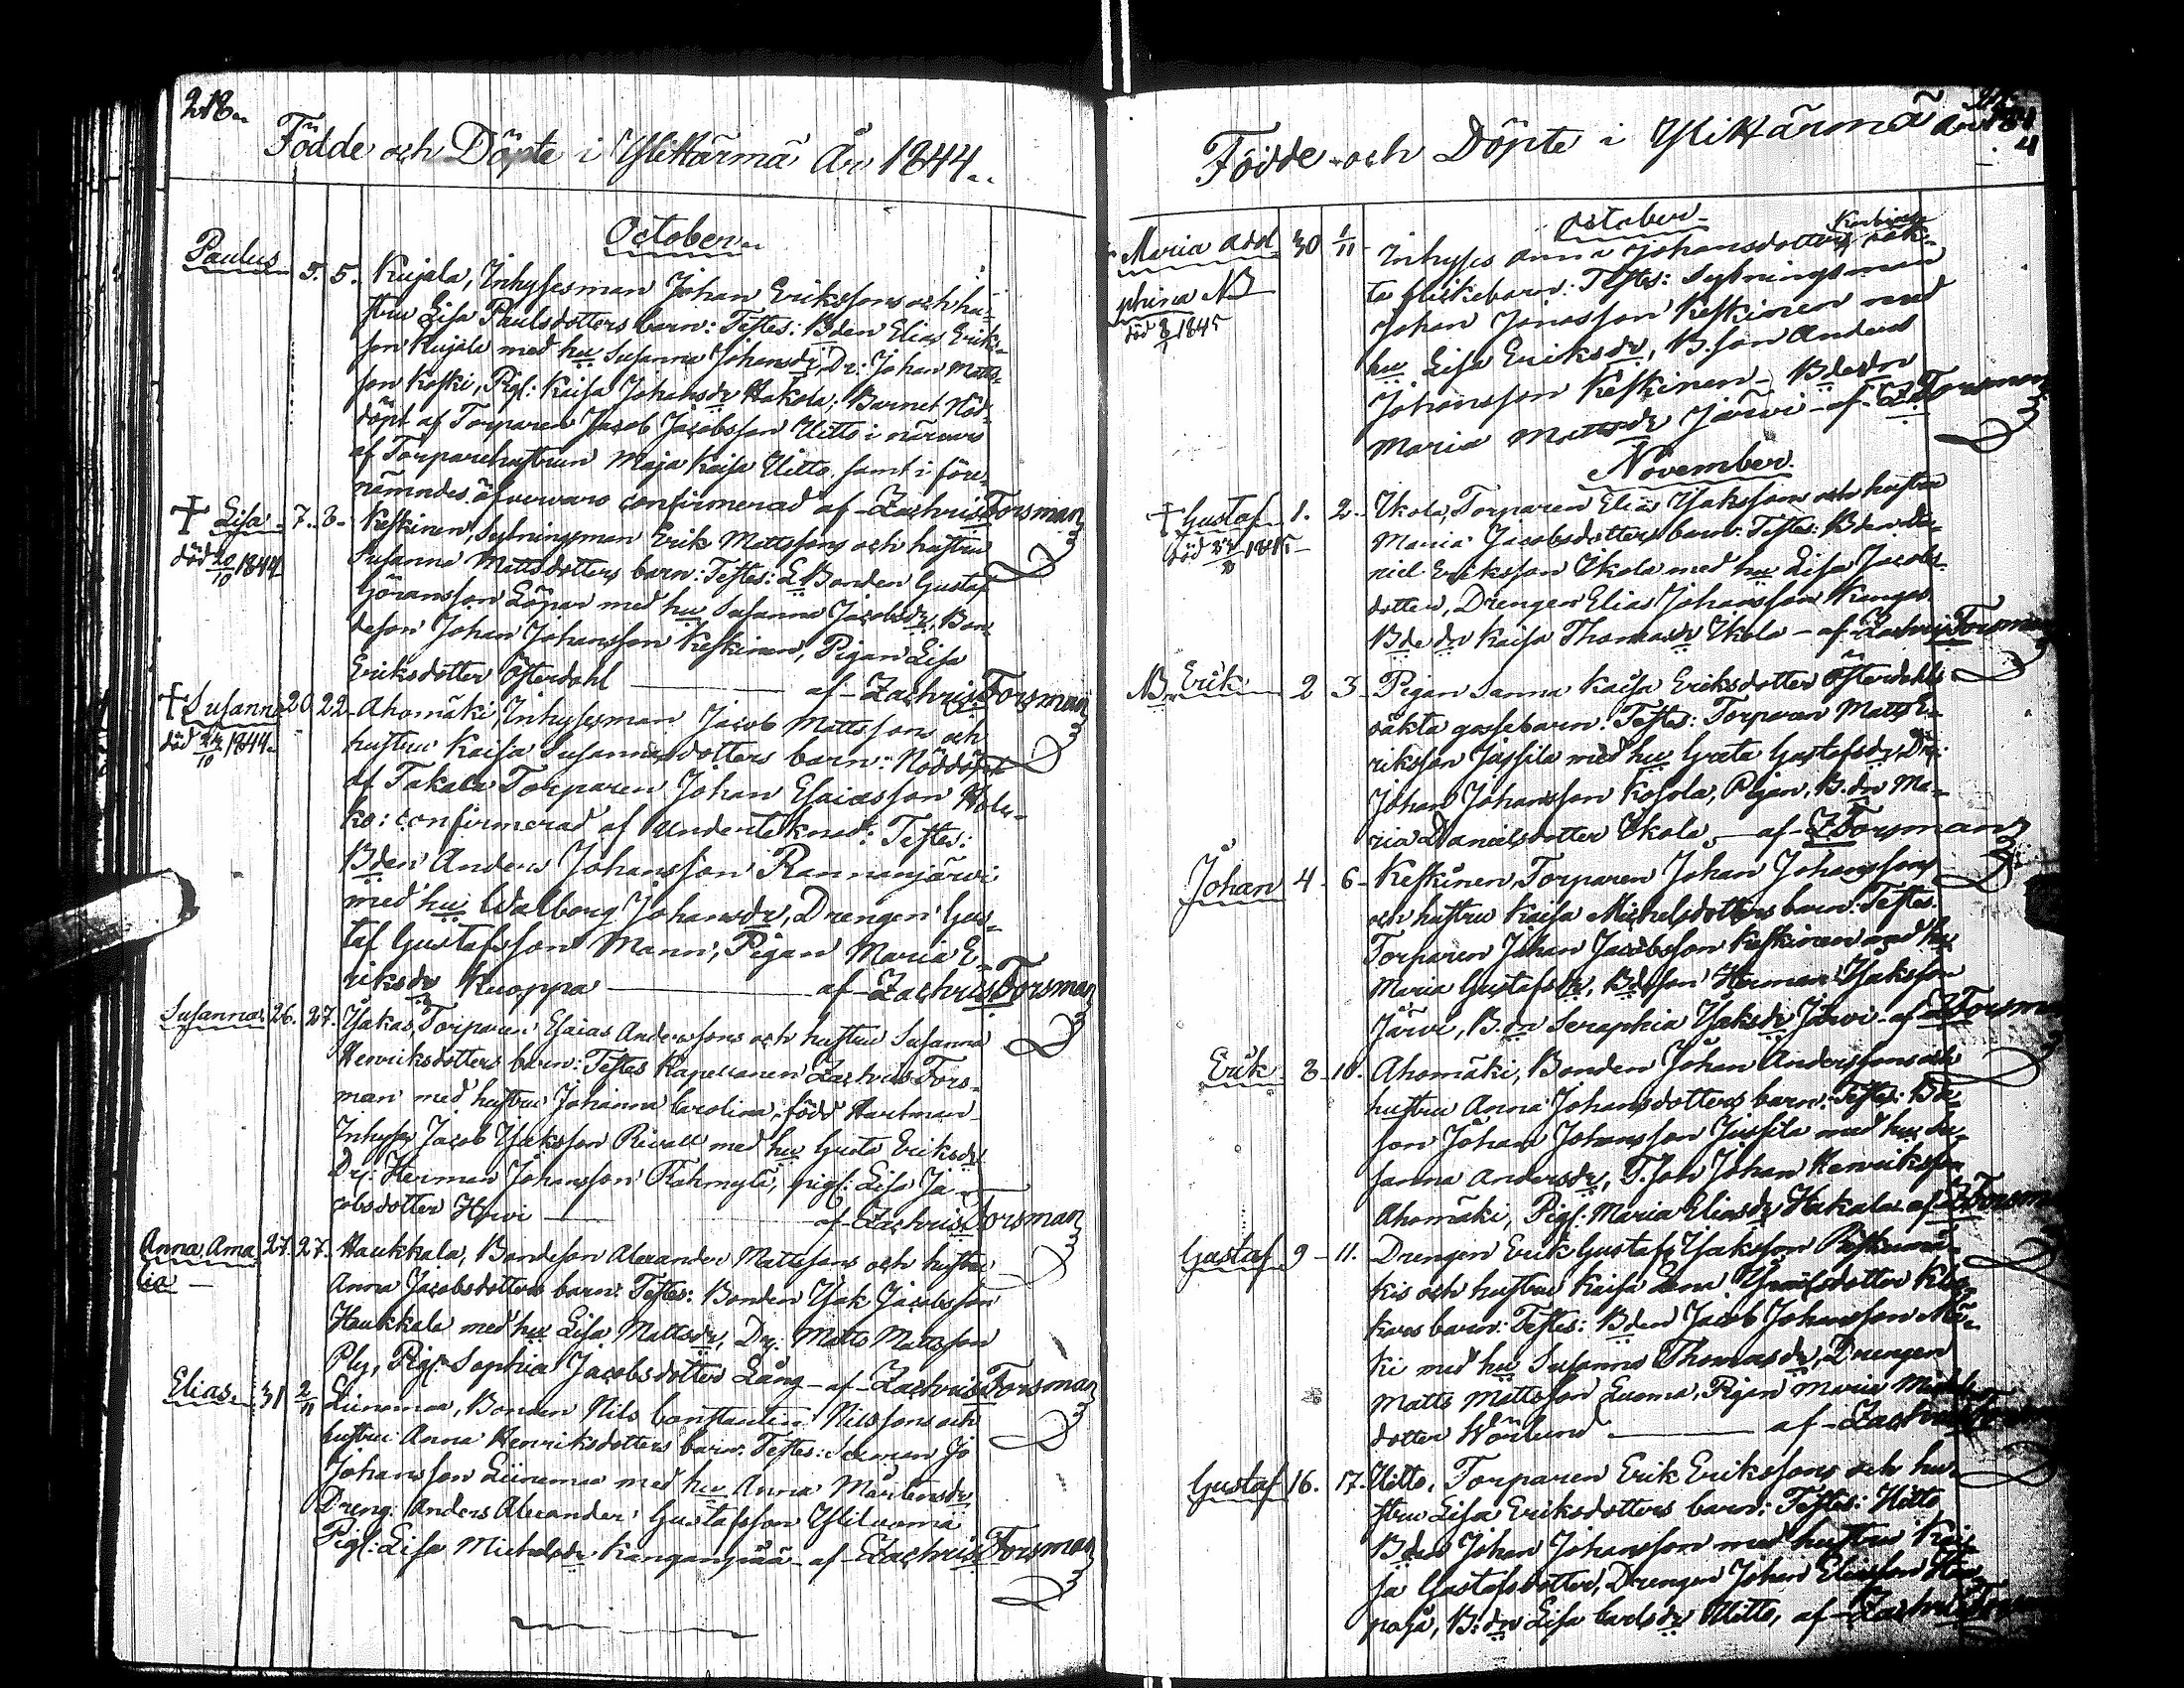 218.
Födde och Döpte i Ylikärmä År 1844.
October
Paulus 5. 5. Kujala, Inhysesman Johan Erikssons och hu-
stru Lisa Paulsdotters barn: Testes: Bden Elias Eriks-
son Kujala med hu Susanna Johansdr, Dr: Johan Matts-
son Koski, Pig: Kaisa Johansdr Hakola; Barnet Nöd-
döpt af Torparen Jacob Jacobsson Uitto i närvaro
af Torparehustrun Maja Kaisa Uitto samt i före-
nämndes öfvervaro confirmerad af Zachris Forsman
† Lisa 7. 8. Keskinen, Sytningsman Erik Mattssons och hustru
död 20/10 1844
Susanna Mattsdotters barn: Testes: L Bonden Gustaf
Göransson Löpar med hu Susanna Jacobsdr, Bon-
deson Johan Johansson Keskinen, Pigan Lisa
Eriksdotter Österdahl af Zachris Forsman
† Susanna 20 22 Ahomäki, Inhysesman Jacob Mattssons och
död 24/10 1844
hustru Kaisa Susannasdotters barn: Nöddöpt
af Takala Torparen Johan Esaiasson
ko: confirmerad af Underteknad: Testes:
Bden Anders Johansson Rannanjärvi
med hu Walborg Johansdr, Drengen Gus-
taf Gustafsson Mann, Pigan Maria E-
riksdr Kuoppa af Zachris Forsman
Susanna 26. 27. Ysakas, Torparen Esaias Anderssons och hustru Susanna
Henriksdotters barn: Testes Kapellanen Zachris Fors-
man med hustru Johanna Carolina, född Hartman
Inhyses Jacob Ysaksson Rivall med hu Greta Eriksdr
Dr: Herman Johansson Rahmyli, pig: Lisa Ja-
cobsdotter af Zachris Forsman
Anna Ama 27. 27. Haukkala, Bondeson Alexander Mattssons och hustru
lia
Anna Jacobsdotters barn: Testes: Bonden Ysak Jacobsson
Haukkala med hu Lisa Mattsdr, Dr: Matts Mattsson
Ply, Pig: Sophia Jacobsdotter Lång af Zachris Forsman
Elias 31 2/11 Liinamaa, Bonden Nils Constantin Nilssons och
hustru Anna Henriksdotters barn: Testes: Jo
Johansson Liinamaa med hu Anna Mårtensdr
Dreng: Anders Alexander Gustafsson Yliluoma
Pig: Lisa Michelsdr Kangas af Zachris Forsman
Födde och Döpte i Ylikärmä År 184
4
October
Maria Adol 30 1/11 Inhyses Anna Johansdotters oäk-
phina NB
död 1845
ta flickebarn: Testes: Sytningsman
Johan Jonasson Keskinen med
hu Lisa Eriksdr, B.son Anders
Johansson Keskinen, Bdedr
Maria Mattsdr Järvi af Z. Forsman
November
† Gustaf 1. 2. Ekola, Torparen Elias Ysakssons och hustru
död 1845
Maria Jacobsdotters barn: Testes: Bden Da-
niel Eriksson Ekola med hu Lisa Jacobs-
dotter, Drengen Elias Johansson Kangas
Bdedr Kaisa Thomasdr Ekola af Zachris Forsman
NB Erik 2 3 Pigan Sanna Kaisa Eriksdotter Österdahls
oäkta gossebarn: Testes: Torparen Matts E-
riksson Jussila med hu Greta Gustafsdr, Dr:
Johan Johansson Kosola, Pigan B.dr Ma-
ria Danielsdotter Ekola af Z Forsman
Johan 4 6 Keskinen, Torparen Johan Johanssons
och hustru Kaisa Michelsdotters barn: Testes:
Torparen Johan Jacobsson Keskinen med hu
Maria Gustafsdr, Bdeson Herman Ysaksson
Järvi, B.dr Seraphia Ysaksdr Järvi af Z Forsman
Erik 8 10. Ahomäki, Bonden Johan Anderssons och
hustru Anna Johansdotters barn: Testes: Bde-
son Johan Johansson Jussila med hu Su-
sanna Andersdr, T.son Johan Henriksson
Ahomäki, Pig: Maria Eliasdr Hakala af Z Forsman
Gustaf 9 11. Drengen Erik Gustaf Ysaksson
kis och hustru Kaisa Lena
kars barn: Testes: Bden Jacob Johansson Mä-
ki med hu Susanna Thomasdr, Drengen
Matts Mattsson Luoma, Pigan Maria Michels
dotter Wörlund af Zachris
Gustaf 16. 17. Uitto, Torparen Erik Erikssons och hu-
stru Lisa Eriksdotters barn: Testes: Uitto
Bden Johan Johansson med hustru Kai-
sa Gustafsdotter, Drengen Johan Eliasson
B.dr Lisa Carlsdr Uitto, af Zachris